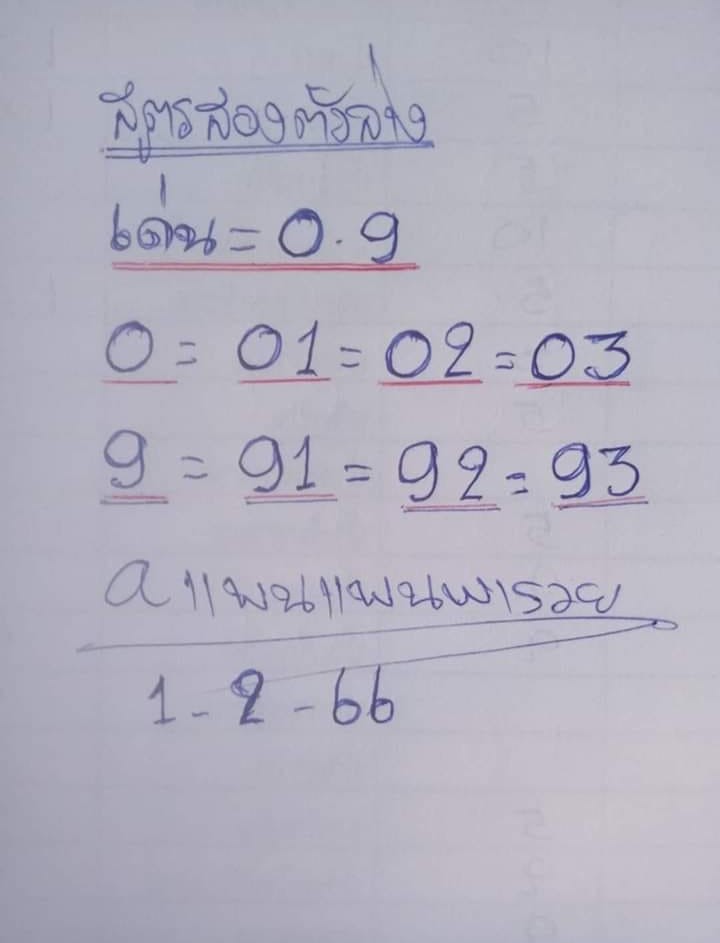 สูตรสองตัวล่าง
เด่น = 0.9
0 = 01 = 02 = 03
9 = 91 = 92 = 93
a แพนแพนพารวย
1 - 2 - 66